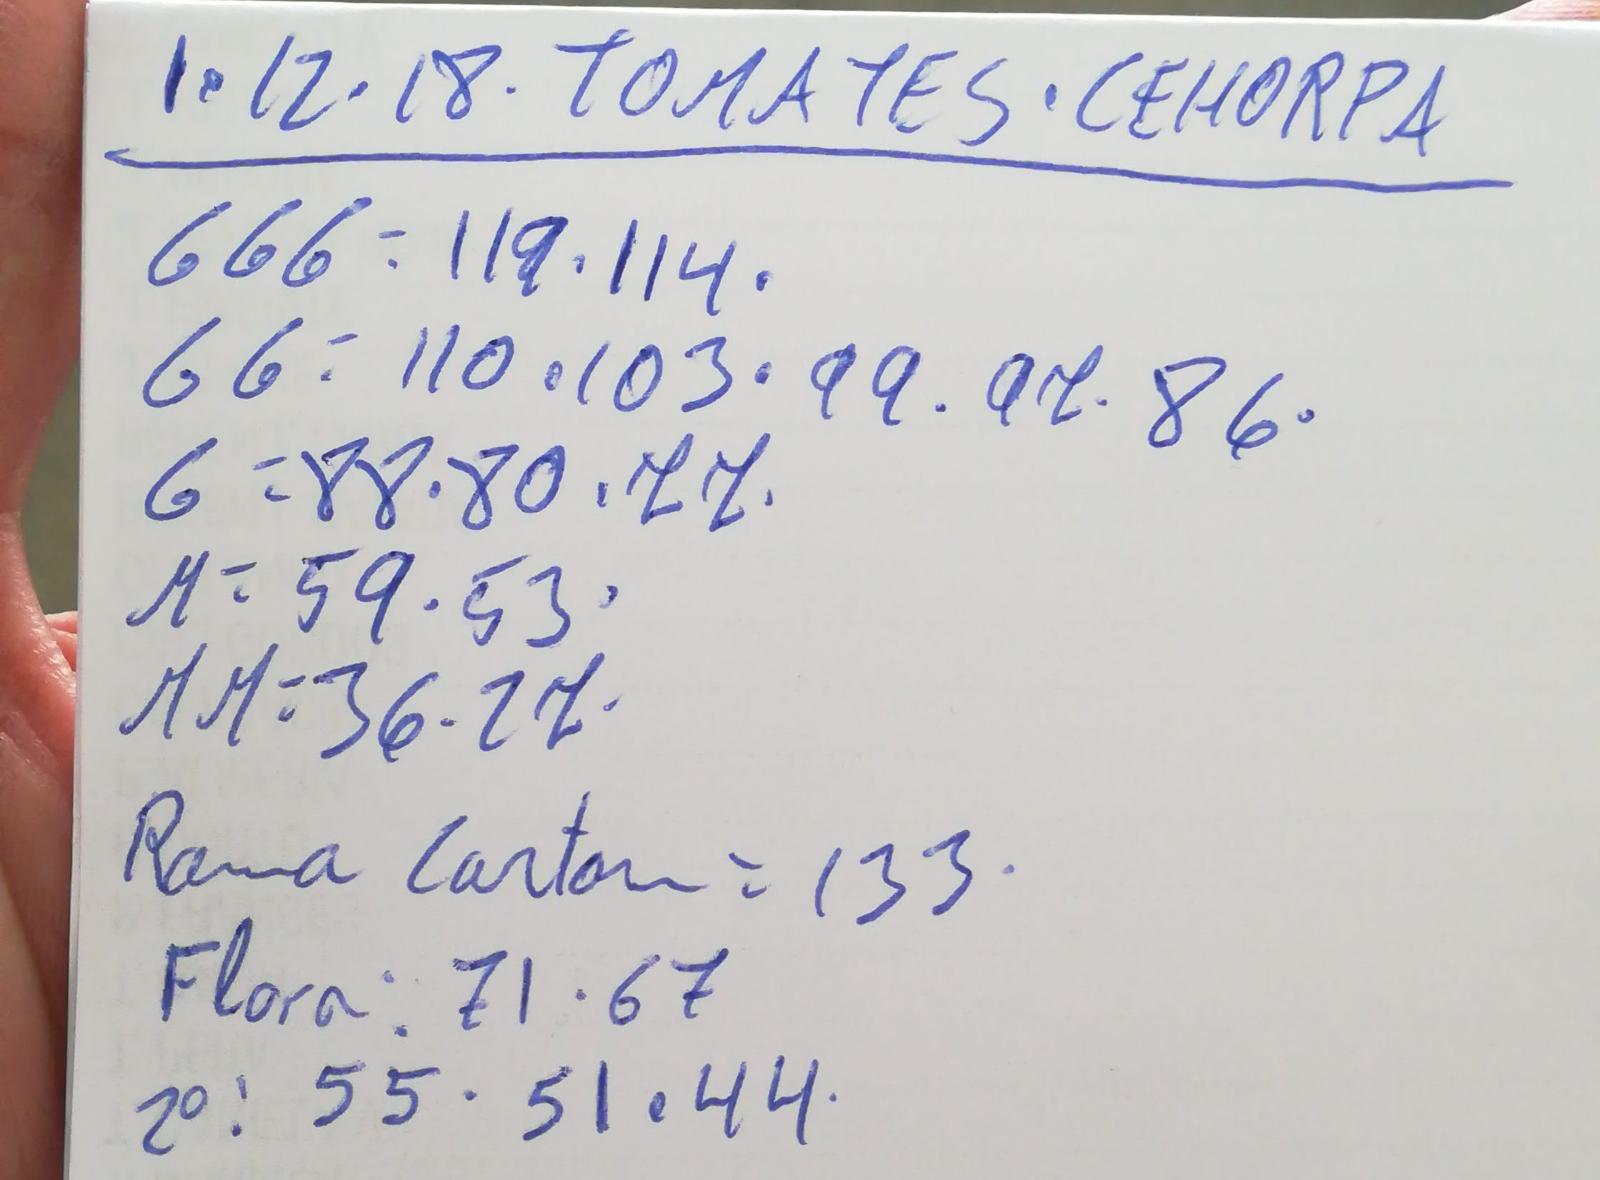 1.12.18. TOMATES. CEHORPA
GGG = 119.114.
GG = 110.103.99.97.86.
G = 88.80.77.
M = 59.53.
MM = 36.27.
Rama Carton = 133.
Flora: 71.67
2º: 55.51.44.